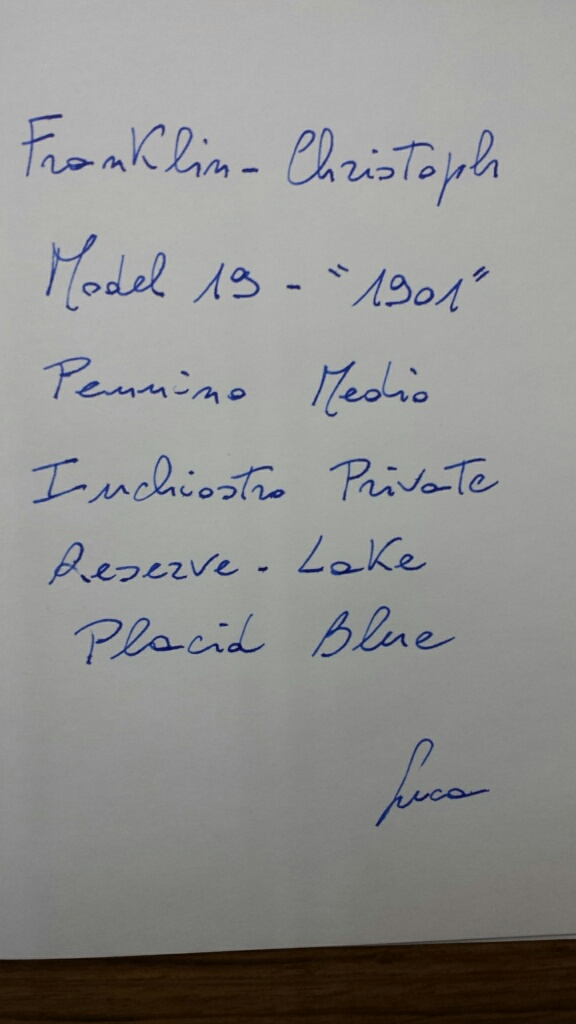 Franklin - Christoph
Model 19 - "1901"
Pennino Medio
Inchiostro Private
Reserve - Lake
Placid Blue
Luca